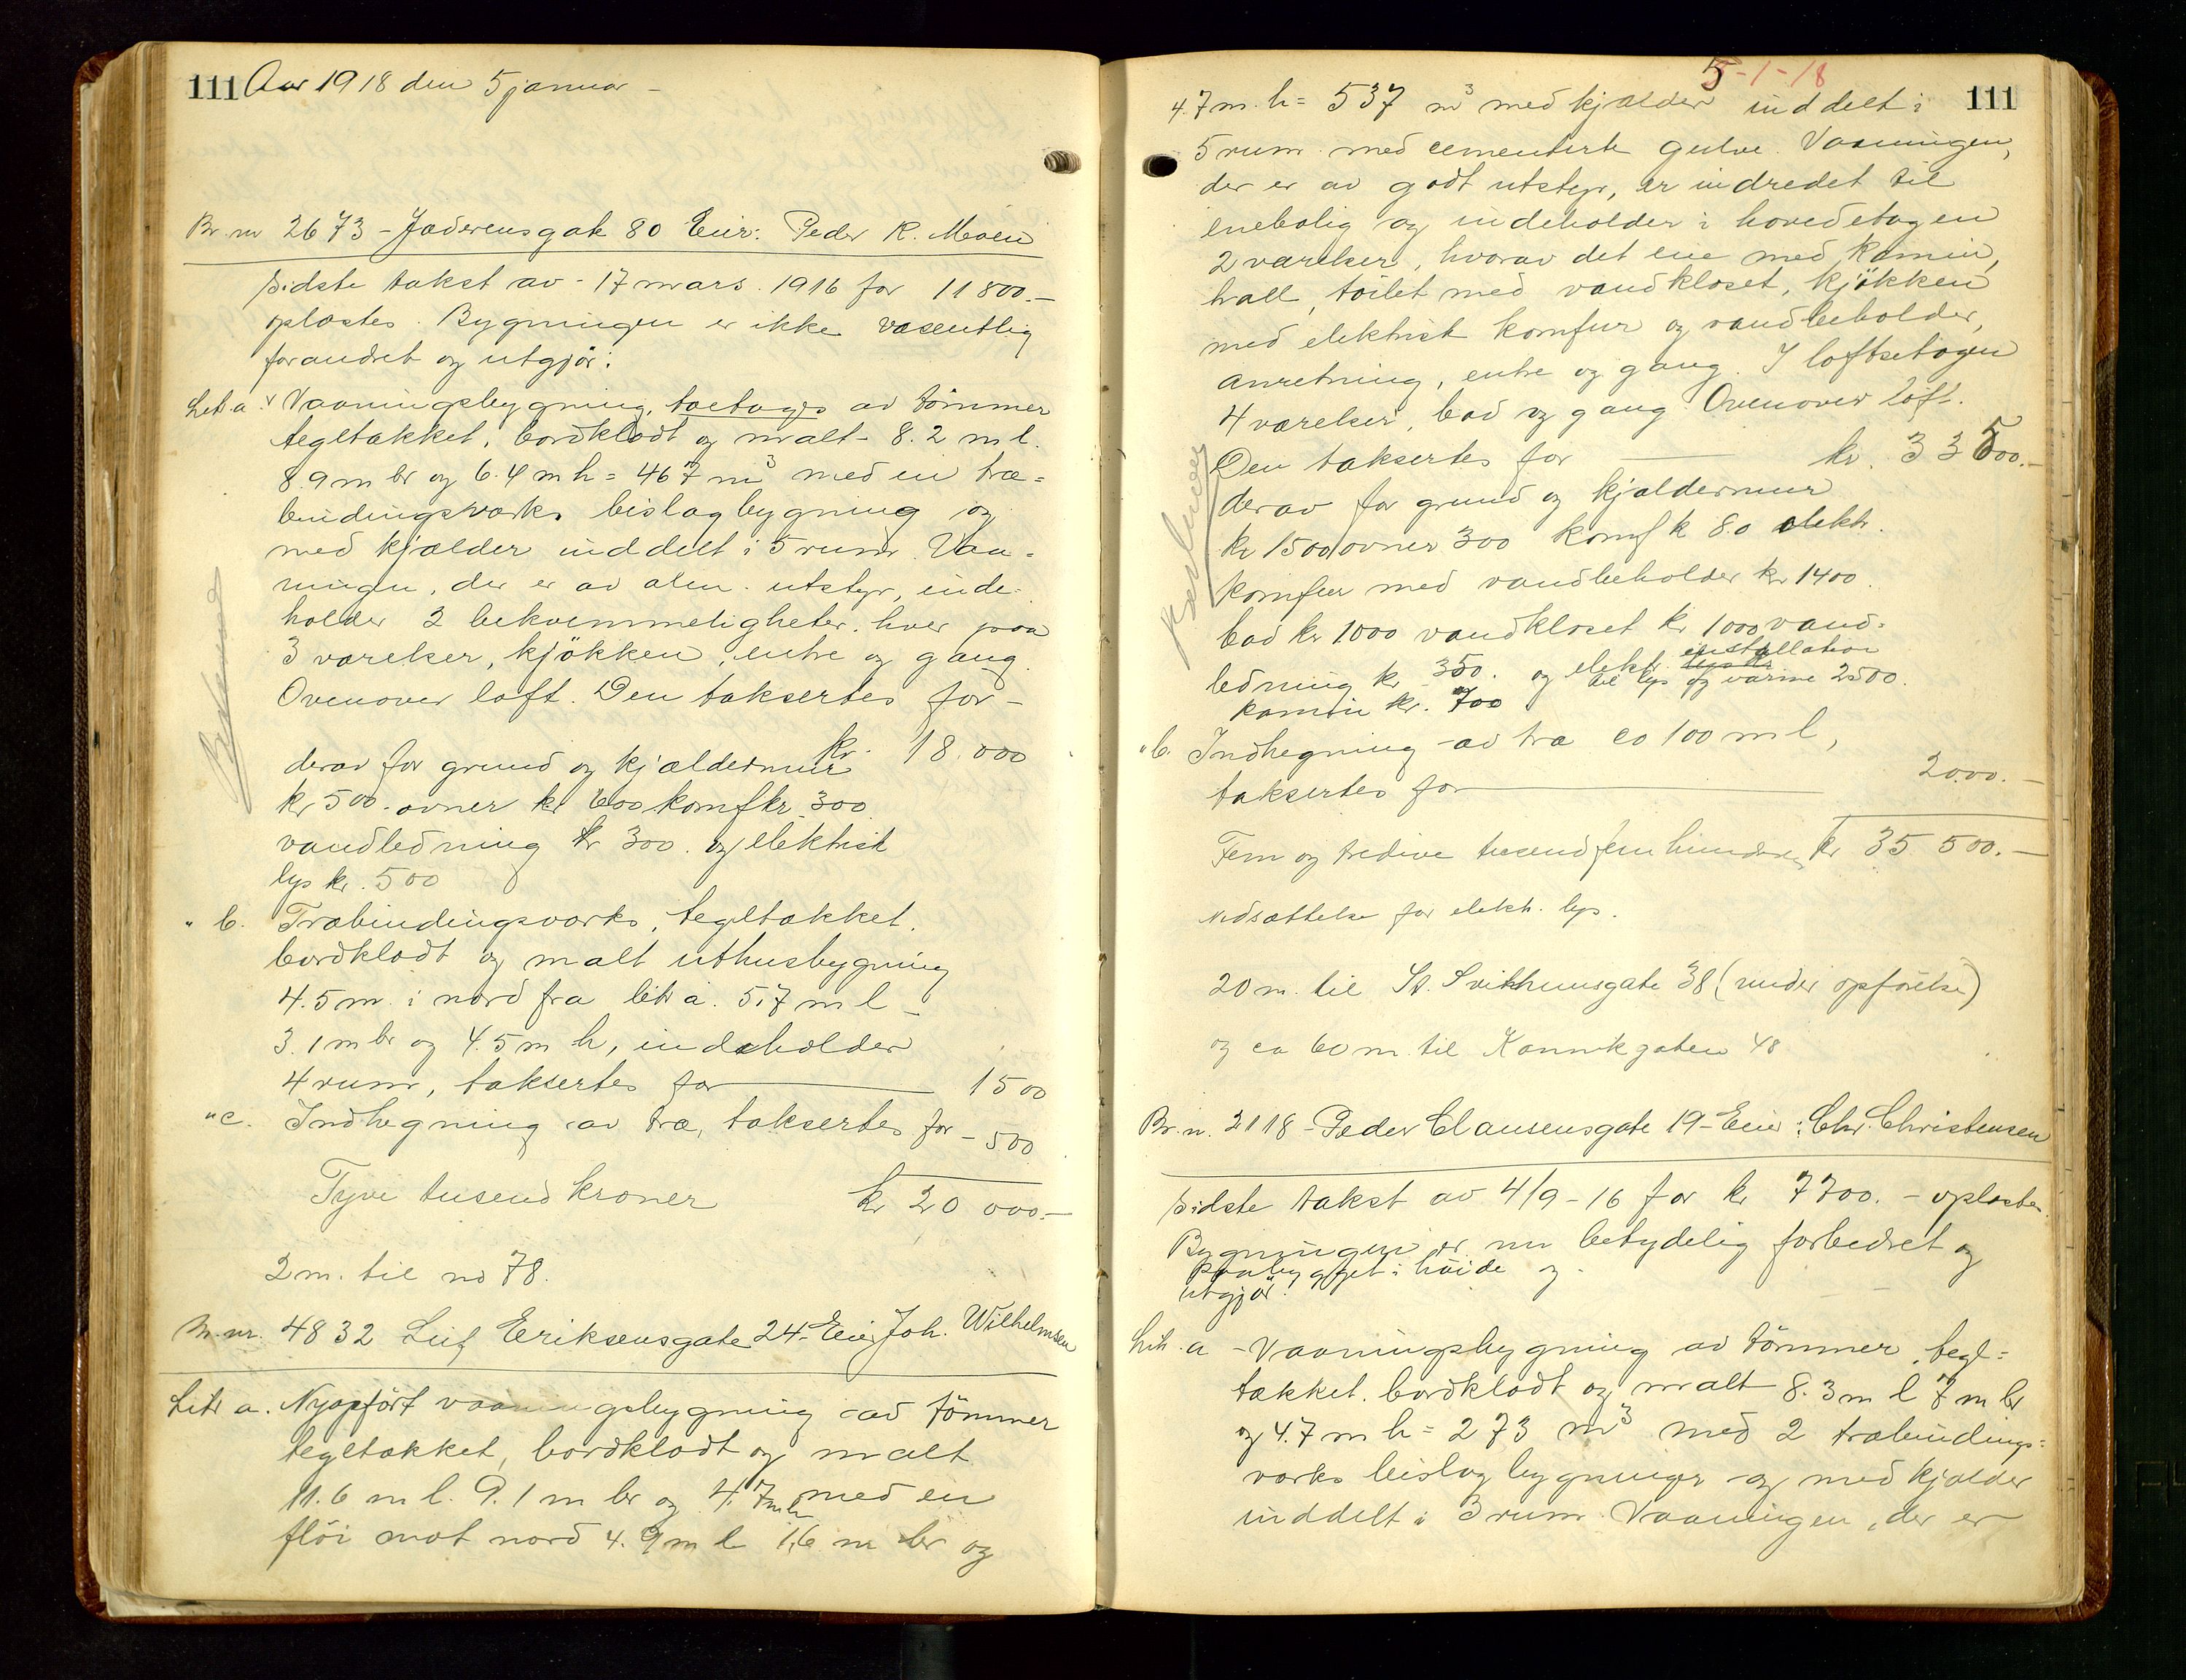 111 Aar 1918 den 5 januar -
Br. nr 2673 - Jæderensgate 80 Eier: Peder R. Moen
Sidste takst av - 17 mars. 1916 for 11 800.-
oplæstes. Bygningen er ikke væsentlig
forandret og utgjør:
Litr a. Vaaningsbygning, toetages av tømmer
tegltækket, bordklædt og malt - 8.2 m l.
8.9 m br og 6.4 m h = 467 m³ med en træ=
bindingsværks bislagbygning og
med kjælder inddelt i 5 rum. Vaa-
ningen, der er av alm. utstyr, inde-
holder 2 bekvemmeligheter. hver paa
3 værelser, kjøkken, entre og gang.
Ovenover loft. Den taksertes for -
kr. 18.000
derav for grund og kjældermur
kr 500. ovner kr 600 komf kr 300
vandledning kr 300. og elektrisk
lys kr. 500
" b. Træbindingsværks, tegltækket.
bordklædt og malt uthusbygning
4.5 m i nord fra litr a. 5.7 m l -
3.1 m br og 4.5 m h, indeholder
4 rum, taksertes for 1500
" c. Indhegning av træ, taksertes for - 500
Tyve tusend kroner kr 20 000.-
2 m. til no 78.
M.nr. 4832 Leif Eriksensgate 24 - Eier Joh. Wilhelmsen
Litr a. Nyopført vaaningsbygning av tømmer
tegltækket, bordklædt og malt
11.6 m l. 9.1 m br og 4.7 m h med en
fløi mot nord 4.9 m l 1,6 m br og
5-1-18
111
4.7 m. h = 537 m³ med kjælder inddelt i
5 rum med cementerte gulve. Vaaningen,
der er av godt utstyr, er indredet til
enebolig og indeholder i hovedetagen
2 værelser, hvorav det ene med kamin,
hall, toilet med vandkloset, kjøkken
med elektrisk komfur og vandbeholder,
anretning, entre og gang. I loftsetagen
4 værelser, bad og gang. Ovenover loft.
Den taksertes for kr. 33500.-
derav for grund og kjældermur
kr 1500 ovner 300 komf k 80 elektr.
komfur med vandbeholder kr 1400.
bad kr 1000 vandkloset kr 1000 vand-
ledning kr 350. og elektr. installation
til lys og varme 2500.
kamin kr. 700
" b. Indhegning - av træ ca 100 m l,
taksertes for 2000.-
Fem og tredive tusend fem hundrede kr 35 500.-
Nedsættelse for elektr. lys.
20 m. til St. Svithunsgate 38 (under opførelse)
og ca 60 m. til Kannikgaten 48
Br. n. 2118 - Peder Clausensgate 19 - Eier: Chr. Christensen
Sidste takst av 4/9 - 16 for kr 7700. - oplæstes.
Bygningen er nu betydelig forbedret og
paabygget i høide og
utgjør:
Litr. a - Vaaningsbygning av tømmer, tegl=
tækket, bordklædt og malt 8.3 m l 7 m br
og 4.7 m h = 273 m³ med 2 træbindings=
værks bislagbygninger og med kjælder
inddelt i 3 rum. Vaaningen, der er